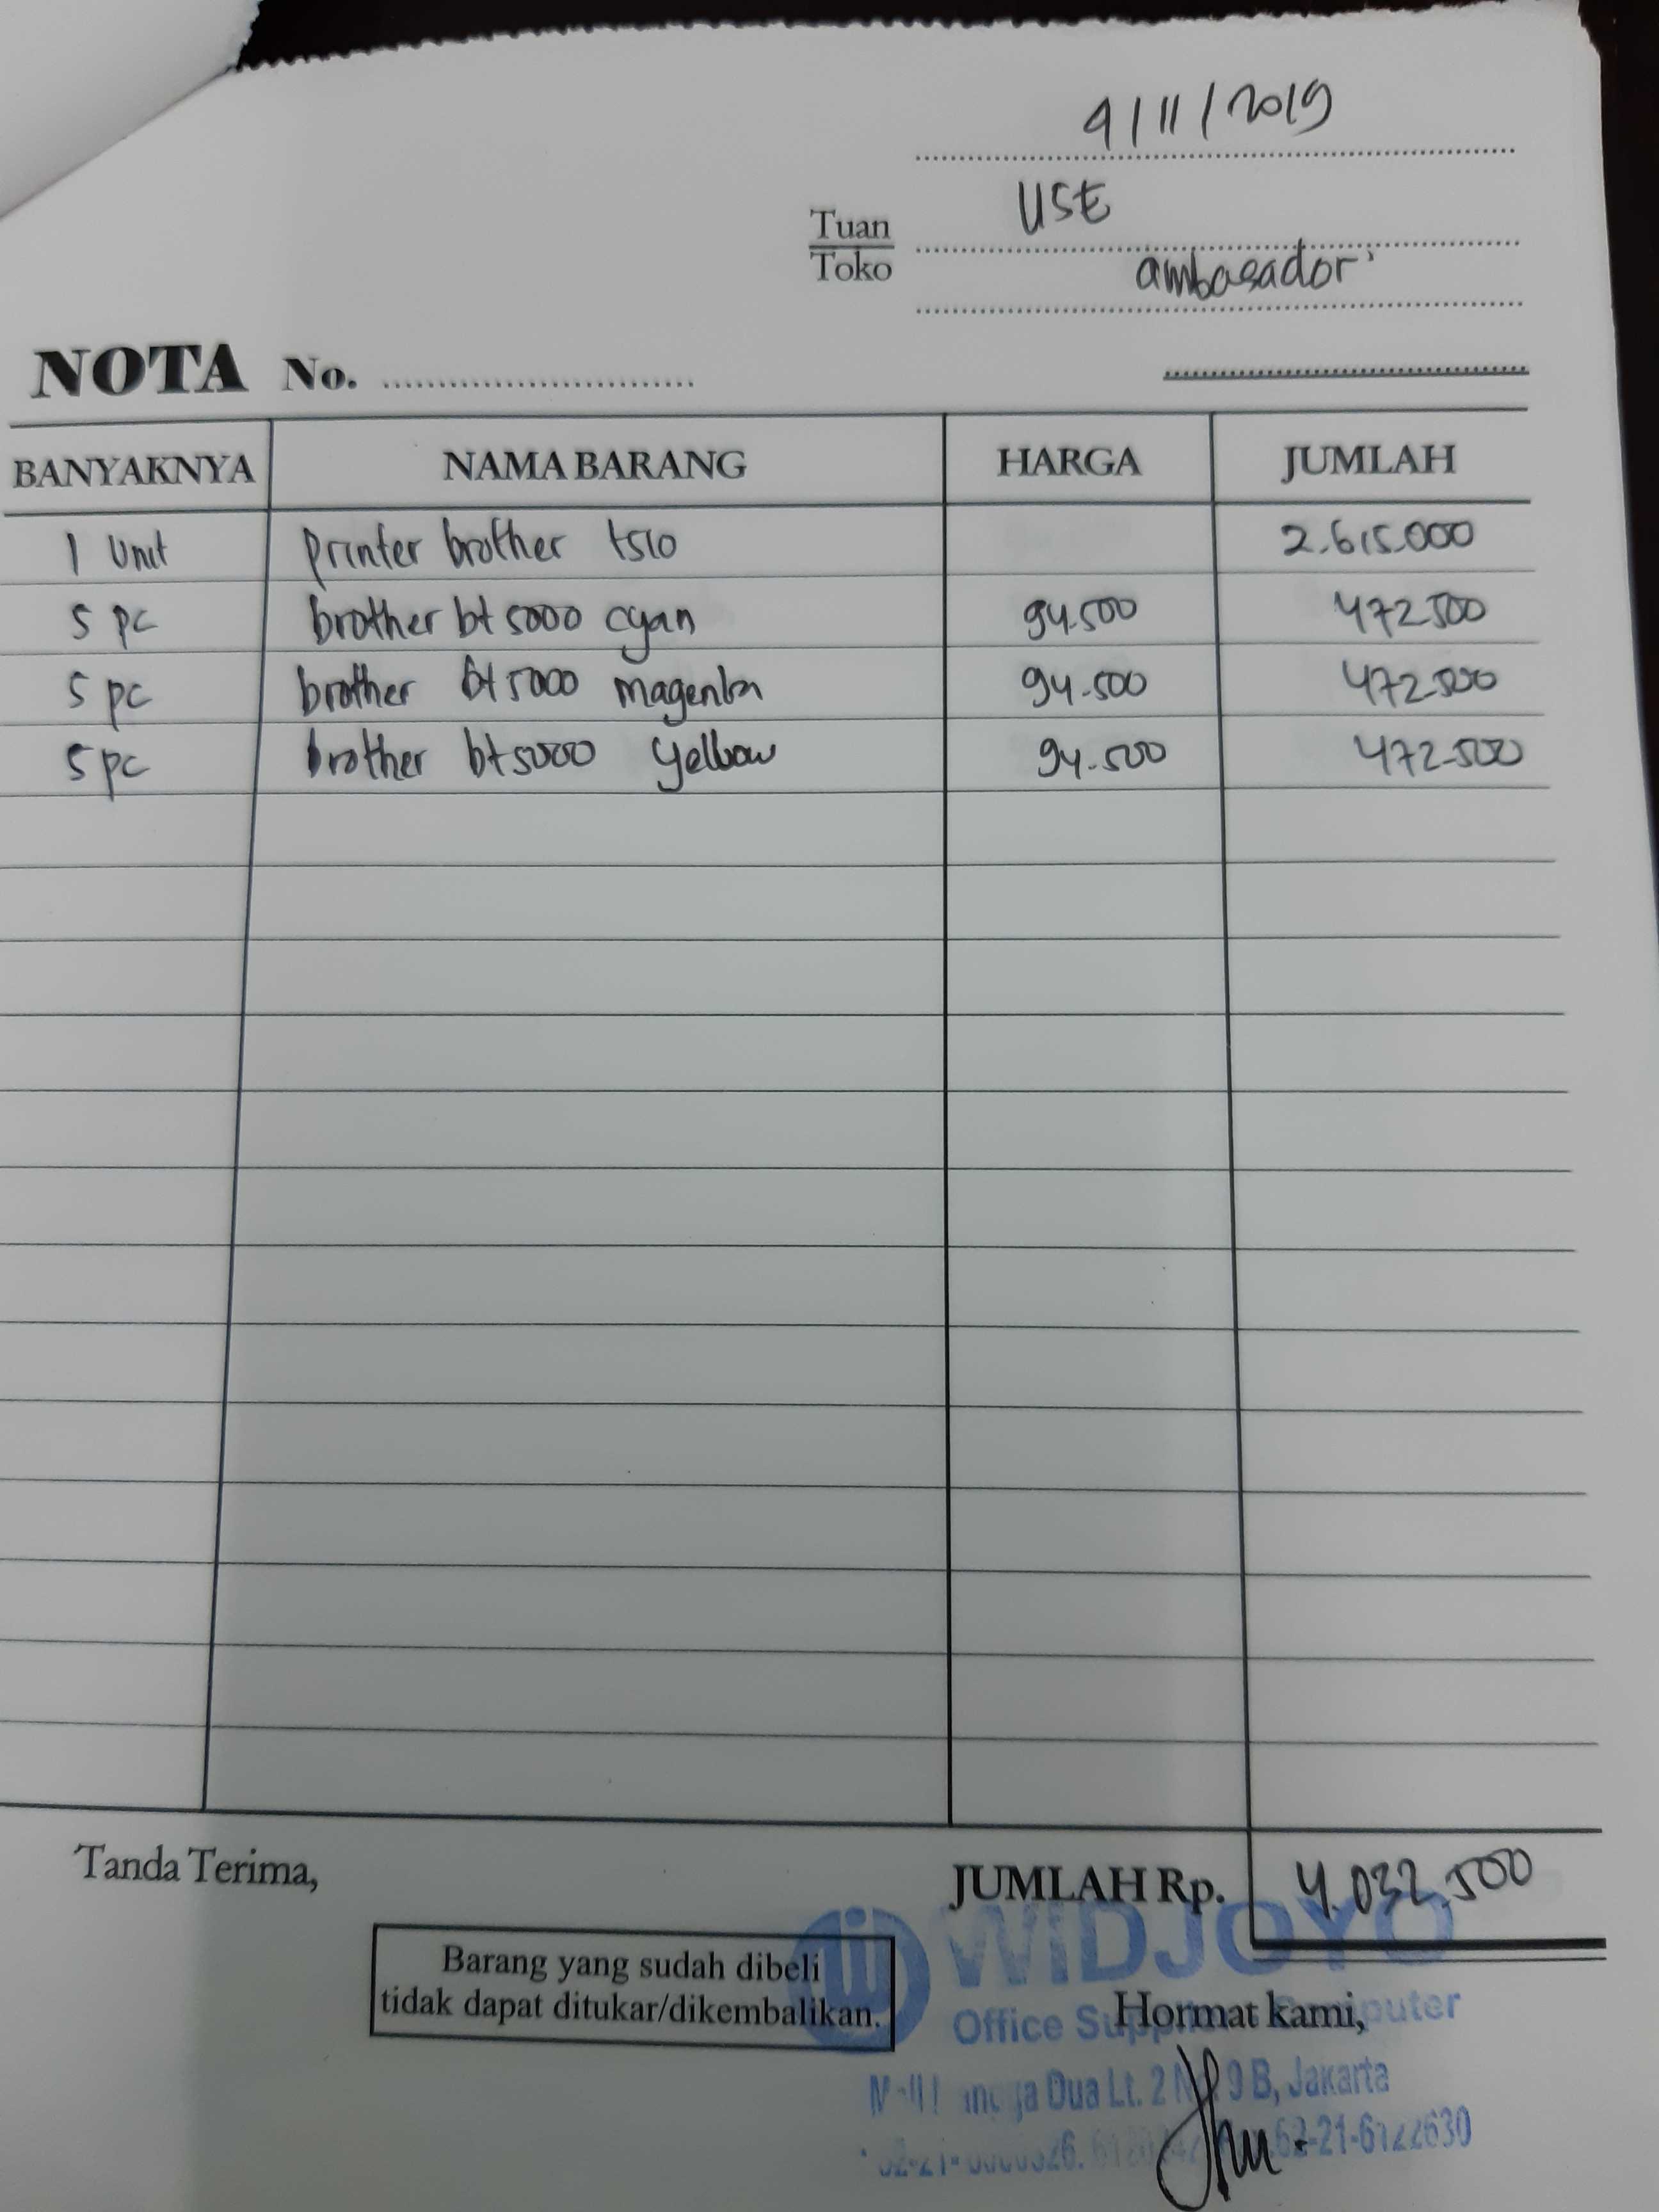 9/11/2019
Tuan
Toko
USE
ambasador
NOTA No.
BANYAKNYA NAMA BARANG HARGA JUMLAH
1 Unit printer brother t510 2.615.000
5 pc brother bt 5000 cyan 94.500 472.500
5 pc brother bt 5000 magenta 94.500 472.500
5 pc brother bt 5000 yellow 94.500 472.500
Tanda Terima,
JUMLAH Rp. 4.032.500
Barang yang sudah dibeli
tidak dapat ditukar/dikembalikan.
WIDJOYO
Hormat kami,
Office Computer
Dua Lt. 2 9 B, Jakarta
62-21-6122630